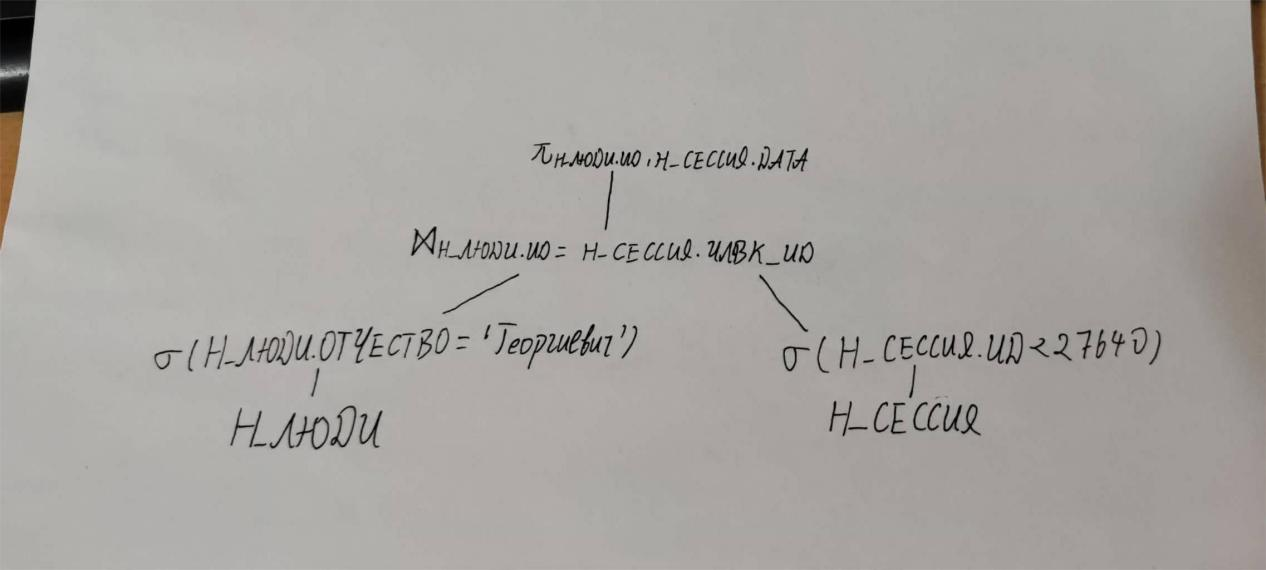 π Н_ЛЮДИ.ИД, Н_СЕССИЯ.ДАТА
⋈ Н_ЛЮДИ.ИД = Н_СЕССИЯ.ЧЛВК_ИД
σ (Н_ЛЮДИ.ОТЧЕСТВО = 'Георгиевич') σ (Н_СЕССИЯ.ИД < 27640)
Н_ЛЮДИ Н_СЕССИЯ